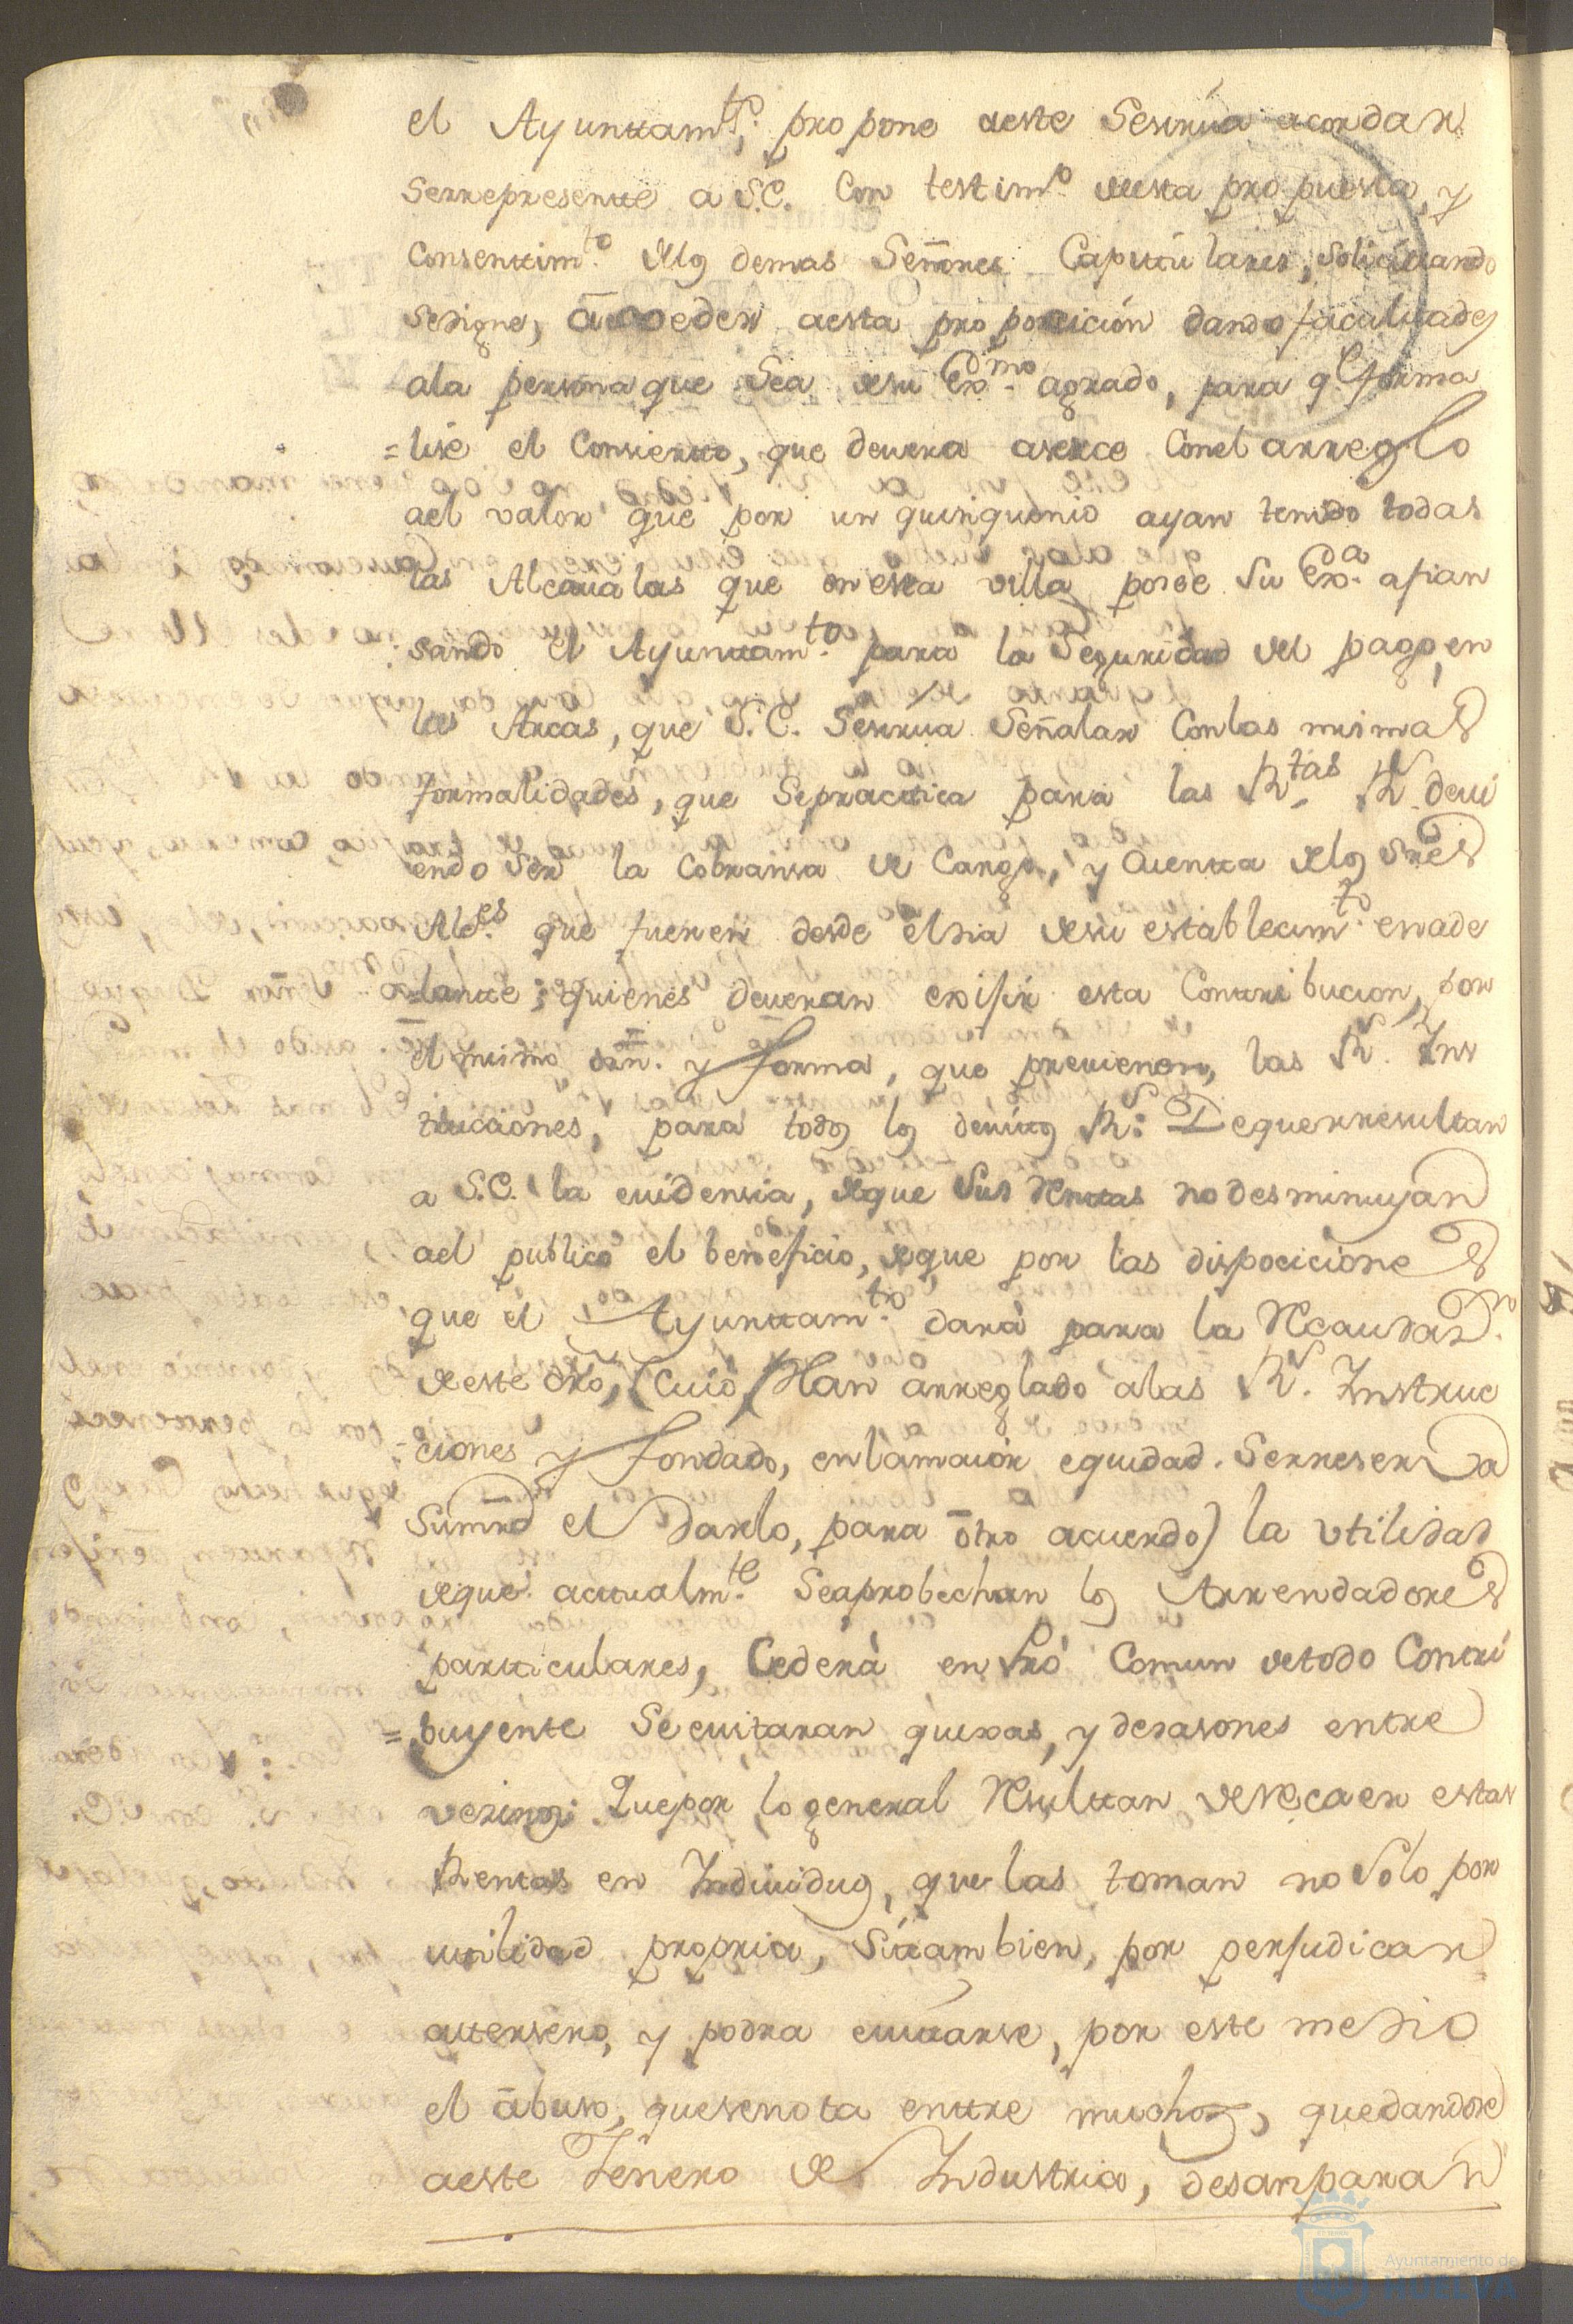 el Ayuntam.to, propone aeste Sesirùa acordar
Serrepresente a S.E. Con testim.o desta propuesta, y
Consentim.to delos demas Señores Capitùlares, Solicitando
sedigne, acceder aesta proposición dando facultades
ala persona que Sea desu Exmo. agrado, para q.e forma
=lise el Consierto, que devera aserce Conel arreglo
ael valor que por un quinquenio ayan tenido todas
las Alcavalas que enesta villa posee Su Exa. afian
sando el Ayuntam.to para la Seguridad del pago, en
las Arcas, que S.E. Sesirua Señalar Conlas mismas
formalidades, que Sepractica para las R.tas R.s devi
endo Ser la Cobransa de Cargo, y Quenta delos Sres
Ales. que fueren desde eldia desu establecim.to enade
=lante; quienes deveran exijir esta Contribucion, por
el mismo orn. y forma, que previenen, las R.s Ins
trucciones, para todos los devitos R.s Dequerresultan
a S.E. la evidensia, deque Sus Rentas no desminuyan
ael publico el beneficio, deque por las dispociciones
que el Ayuntam.to darà para la Recaudaz.n
deeste dro, (Cuio Plan arreglado alas R.s Instruc
ciones y fondado, enlamaior equidad. Serreserva
Sumrd el Darlo, para otro acuerdo) la vtilidad
deque actualm.te Seaprobechan los Arrendadores
particulares, Cederà en Prò Comun detodo Contri
=buyente Se evitaran quexas, y desasones entre
vezinos: Quepor lo general Resultan derecaer estas
Rentas en Individuos, que las toman no Solo por
utilidad propria, Sitambien, por perjudicar
atersero, y podra evitarse, por este medio
el abuso, quesenota entre muchos, quedandose
aeste Jenero de Industria, desanparan
Ayuntamiento de
HUELVA